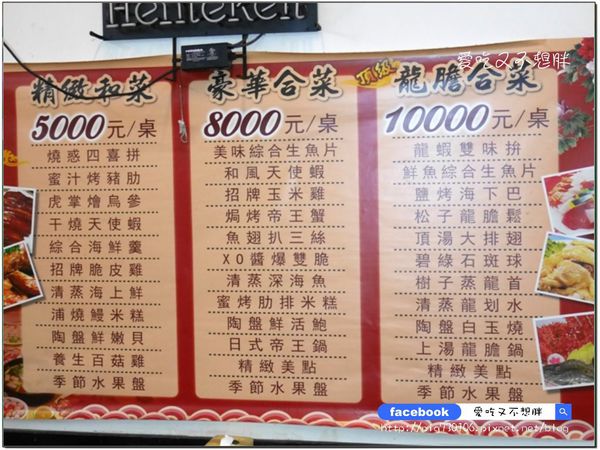 Heineken
愛吃又不想胖
精緻和菜
5000元/桌
燒惑四喜拼
蜜汁烤豬肋
虎掌燴烏參
干燒天使蝦
綜合海鮮羹
招牌脆皮雞
清蒸海上鮮
浦燒鰻米糕
陶盤鮮嫩貝
養生百菇雞
季節水果盤
豪華合菜
8000元/桌
美味綜合生魚片
和風天使蝦
招牌玉米雞
焗烤帝王蟹
魚翅扒三絲
XO醬爆雙脆
清蒸深海魚
蜜烤肋排米糕
陶盤鮮活鮑
日式帝王鍋
精緻美點
季節水果盤
頂級
龍膽合菜
10000元/桌
龍蝦雙味拚
鮮魚綜合生魚片
鹽烤海下巴
松子龍膽鬆
頂湯大排翅
碧綠石斑球
樹子蒸龍首
清蒸龍划水
陶盤白玉燒
上湯龍膽鍋
精緻美點
季節水果盤
facebook 愛吃又不想胖
http://pig730106.pixnet.net/blog